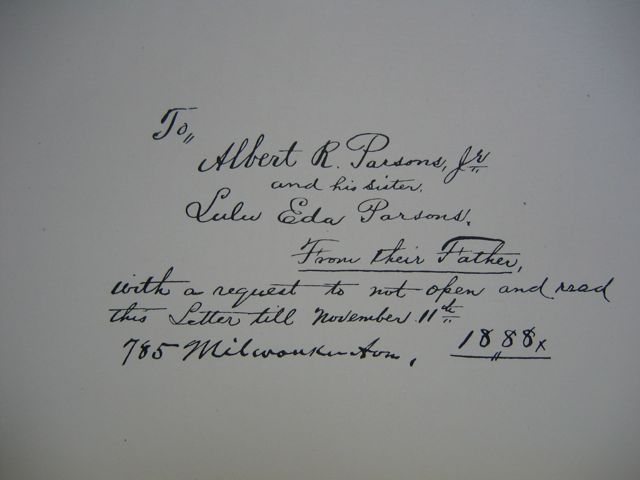 To,,
Albert R. Parsons, Jr
and his sister,
Lulu Eda Parsons.
From their Father,
with a request to not open and read
this Letter till November 11th
785 Milwaukee Ave, 1888x